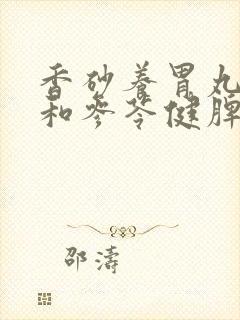 香砂養胃丸
和參苓健脾
邵濤